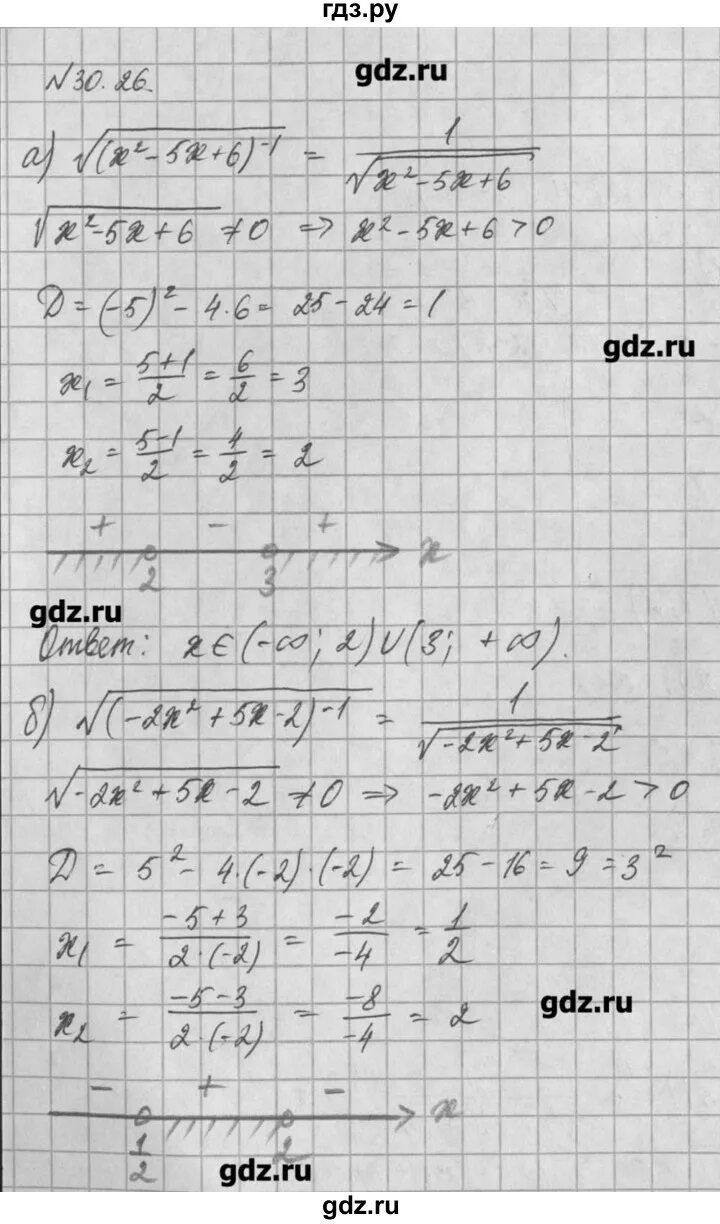 гдз.ру
gdz.ru
№30.26.
а) √(x² - 5x + 6)⁻¹ = 1/√(x² - 5x + 6)
√(x² - 5x + 6) ≠ 0 ⇒ x² - 5x + 6 > 0
D = (-5)² - 4·6 = 25 - 24 = 1
gdz.ru
x₁ = (5+1)/2 = 6/2 = 3
x₂ = (5-1)/2 = 4/2 = 2
+ - +
2 3 x
gdz.ru
Ответ: x ∈ (-∞; 2) ∪ (3; +∞).
б) √(-2x² + 5x - 2)⁻¹ = 1/√(-2x² + 5x - 2)
√(-2x² + 5x - 2) ≠ 0 ⇒ -2x² + 5x - 2 > 0
D = 5² - 4·(-2)·(-2) = 25 - 16 = 9 = 3²
x₁ = (-5+3)/(2·(-2)) = -2/-4 = 1/2
x₂ = (-5-3)/(2·(-2)) = -8/-4 = 2
gdz.ru
- + -
1/2 2 x
gdz.ru
gdz.ru